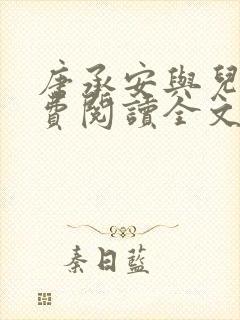 唐承安與兒
費閱讀全文
秦日藍